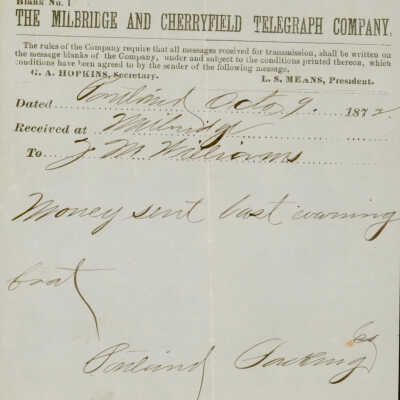 Blank No. 1
THE MILBRIDGE AND CHERRYFIELD TELEGRAPH COMPANY.
The rules of the Company require that all messages received for transmission, shall be written on
the message blanks of the Company, under and subject to the conditions printed thereon, which
conditions have been agreed to by the sender of the following message.
G. A. HOPKINS, Secretary. L. S. MEANS, President.
Dated Portland Octo 9. 1872.
Received at Milbridge
To J M Williams
Money sent last evening
boat
Portland Packing Co